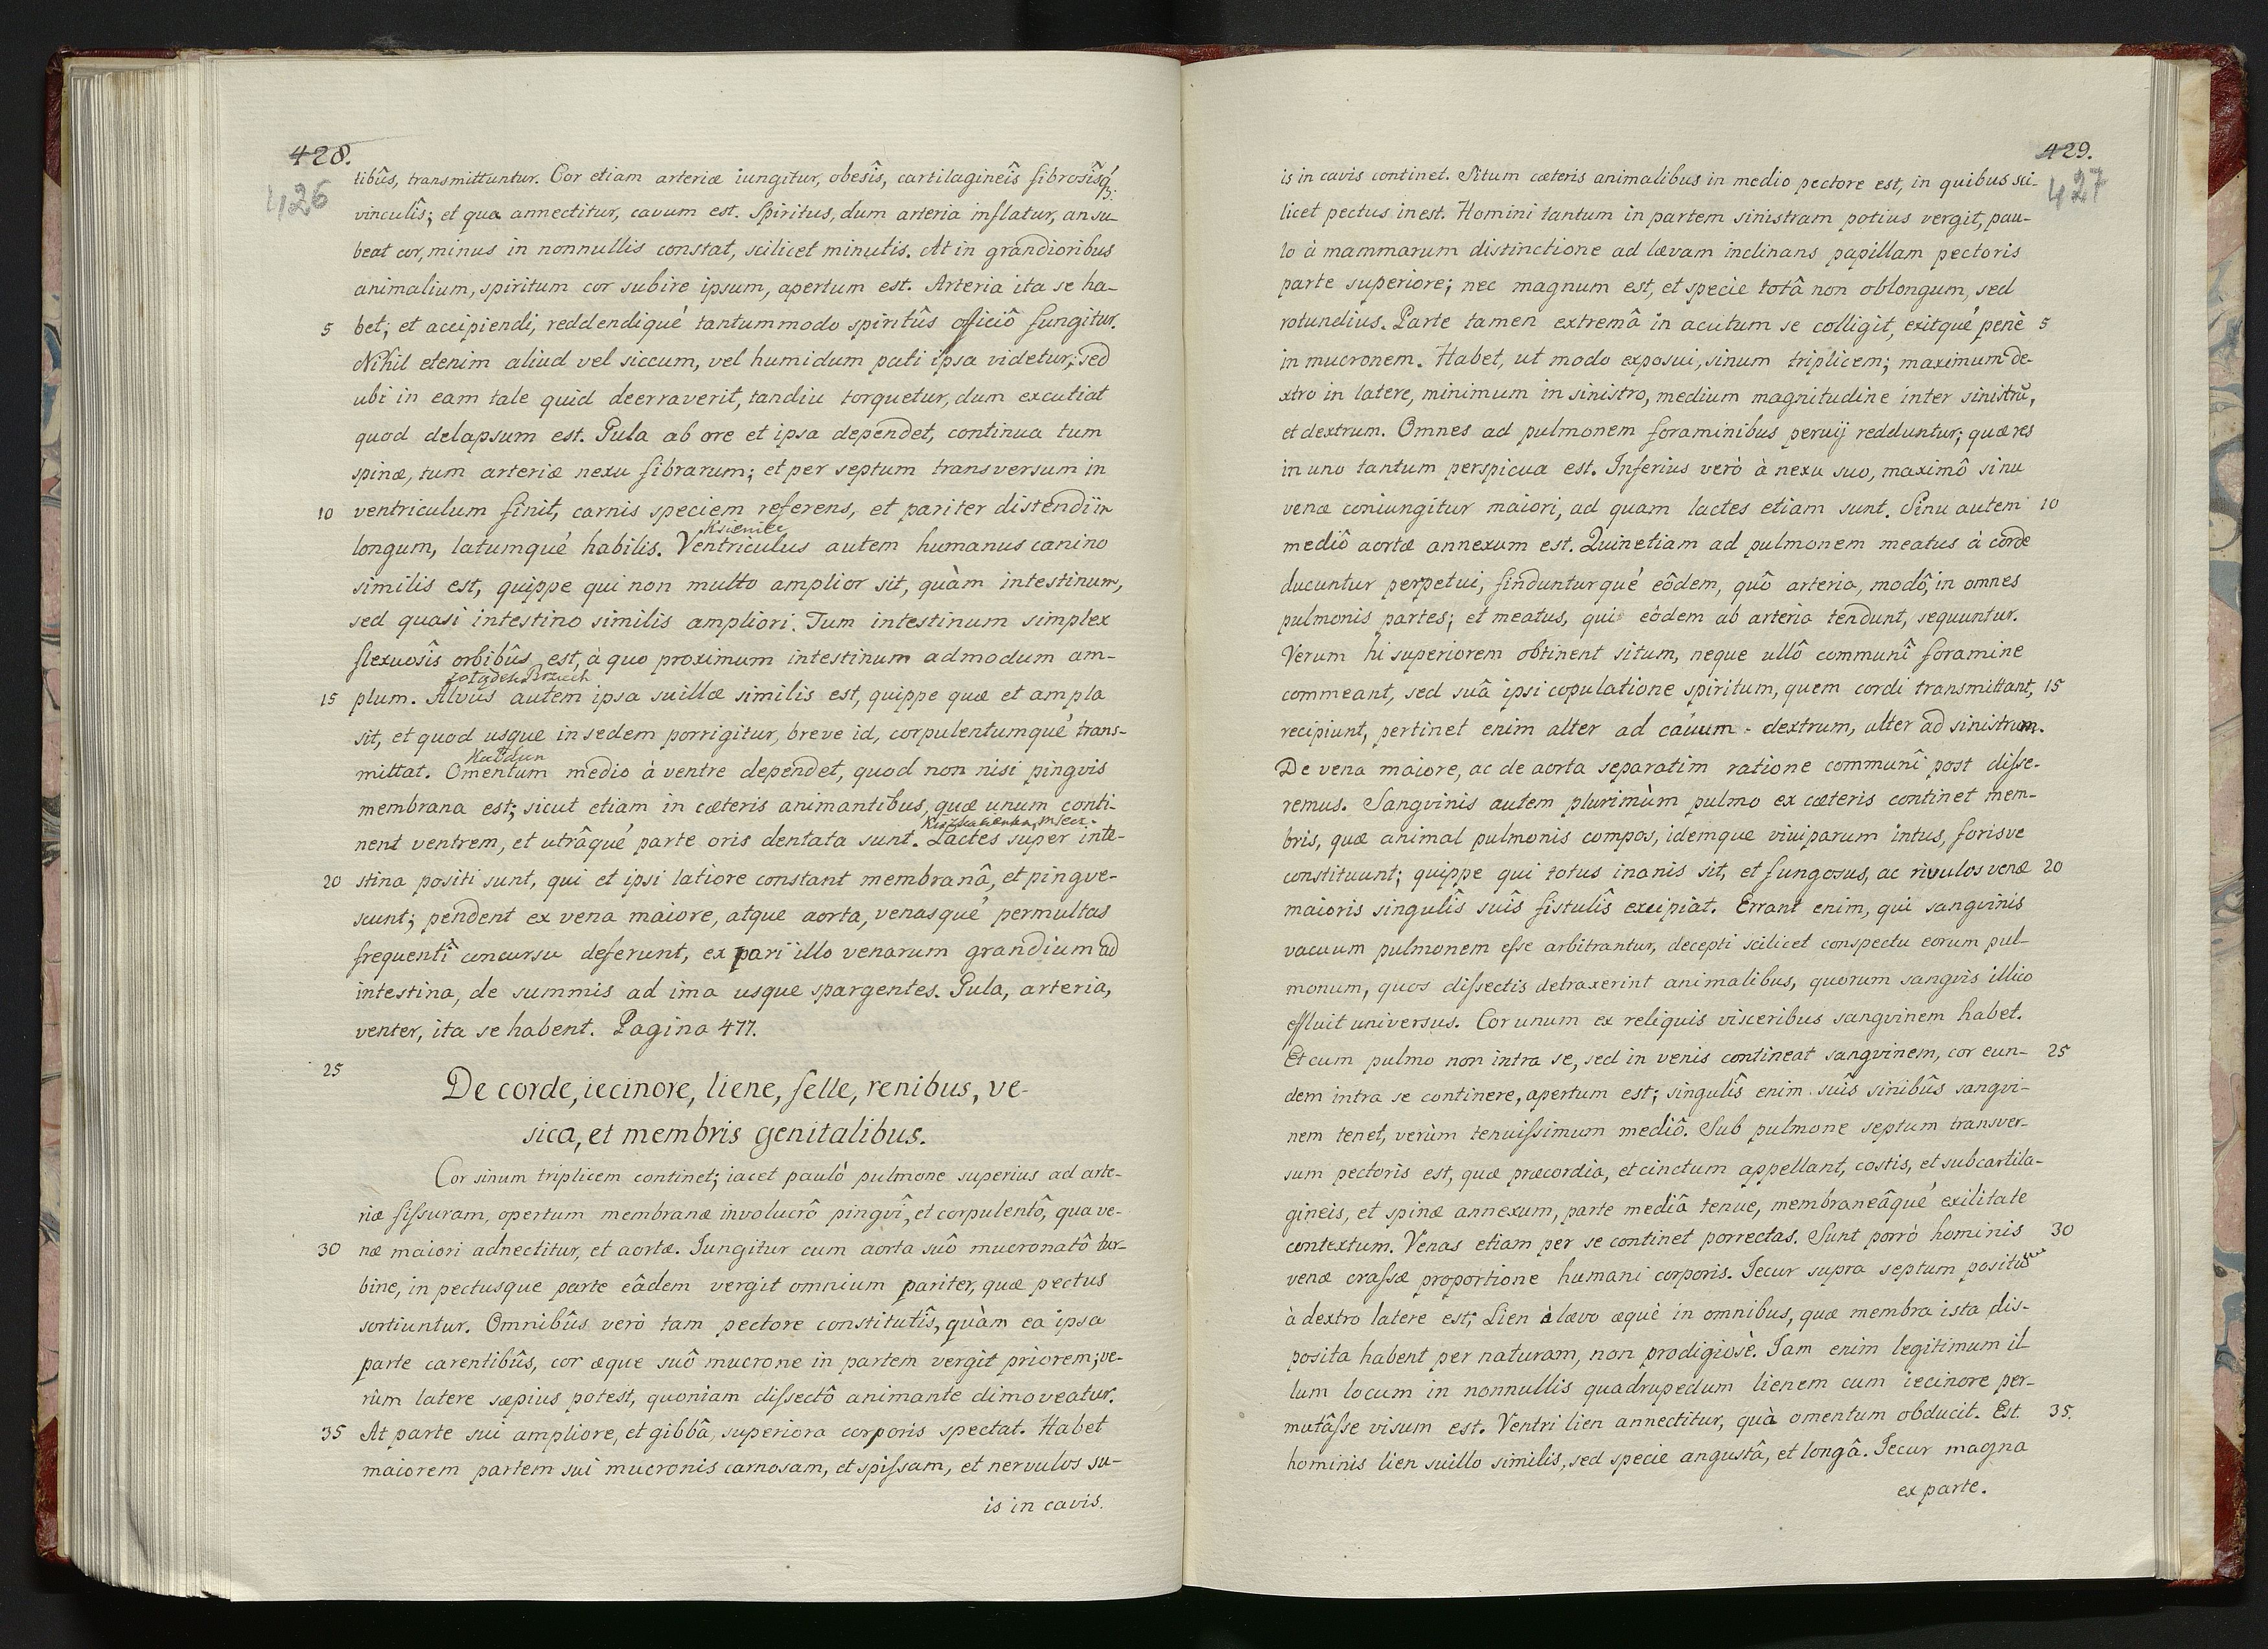 428.
426
tibûs, transmittuntur. Cor etiam arteriæ iungitur, obesîs, cartilagineîs fibrosîsq;
vinculîs; et qua annectitur, cavum est. Spiritus, dum arteria inflatur, an su-
beat cor, minus in nonnullis constat, scilicet minutis. At in grandioribus
animalium, spiritum cor subire ipsum, apertum est. Arteria ita se ha-
5 bet; et accipiendi, reddendiqué tantummodo spiritûs officiô fungitur.
Nihil etenim aliud vel siccum, vel humidum pati ipsa videtur; sed
ubi in eam tale quid deerraverit, tandiu torquetur, dum excutiat
quod delapsum est. Gula ab ore et ipsa dependet, continua tum
spinæ, tum arteriæ nexu fibrarum; et per septum transversum in
10 ventriculum finit, carnis speciem referens, et pariter distendi in
Ksienice
longum, latumqué habilis. Ventriculus autem humanus canino
similis est, quippe qui non multo amplior sit, quàm intestinum,
sed quasi intestino similis ampliori. Tum intestinum simplex
flexuosîs orbibûs est, à quo proximum intestinum admodum am-
żołądek Brzuch
15 plum. Alvus autem ipsa suillæ similis est, quippe quæ et ampla
sit, et quod usque in sedem porrigitur, breve id, corpulentumqué trans-
Kałdun
mittat. Omentum medio à ventre dependet, quod non nisi pingvis
membrana est; sicut etiam in cæteris animantibus, quæ unum conti-
mlecz.
nent ventrem, et utrâqué parte oris dentata sunt. Lactes super inte-
20 stina positi sunt, qui et ipsi latiore constant membranâ, et pingve-
scunt; pendent ex vena maiore, atque aorta, venasqué permultas
frequentî concursu deferunt, ex pari illo venarum grandium ad
intestina, de summis ad ima usque spargentes. Gula, arteria,
venter, ita se habent. Pagina 477.
25
De corde, iecinore, liene, felle, renibus, ve-
sica, et membris genitalibus.
Cor sinum triplicem continet; iacet paulò pulmone superius ad arte-
riæ fissuram, opertum membranæ involucrô pingvî, et corpulentô, qua ve-
30 næ maiori adnectitur, et aortæ. Iungitur cum aorta suô mucronatô tur-
bine, in pectusque parte eâdem vergit omnium pariter, quæ pectus
sortiuntur. Omnibûs verò tam pectore constitutîs, quàm ea ipsa
parte carentibûs, cor æque suô mucrone in partem vergit priorem; ve-
rùm latere sæpius potest, quoniam dissectô animante dimoveatur.
35 At parte sui ampliore, et gibbâ, superiora corporis spectat. Habet
maiorem partem sui mucronis carnosam, et spissam, et nervulos su-
is in cavis.
429.
427
is in cavis continet. Situm cæteris animalibus in medio pectore est, in quibus sci-
licet pectus inest. Homini tantum in partem sinistram potius vergit, pau-
lo à mammarum distinctione ad lævam inclinans papillam pectoris
parte superiore; nec magnum est, et specie totâ non oblongum, sed
rotundius. Parte tamen extremâ in acutum se colligit, exitqué penè 5
in mucronem. Habet, ut modo exposui, sinum triplicem; maximum de-
xtro in latere, minimum in sinistro, medium magnitudine inter sinistrū,
et dextrum. Omnes ad pulmonem foraminibus pervij redduntur; quæ res
in uno tantum perspicua est. Inferius verò à nexu suo, maximô sinu
venæ coniungitur maiori, ad quam lactes etiam sunt. Sinu autem 10
mediô aortæ annexum est. Quinetiam ad pulmonem meatus à corde
ducuntur perpetui, findunturqué eôdem, quô arteria, modô, in omnes
pulmonis partes; et meatus, qui eôdem ab arteria tendunt, sequuntur.
Verum hi superiorem obtinent situm, neque ullô communî foramine
commeant, sed suâ ipsi copulatione spiritum, quem cordi transmittant, 15
recipiunt, pertinet enim alter ad cavum dextrum, alter ad sinistrum.
De vena maiore, ac de aorta separatim ratione communî post disse-
remus. Sangvinis autem plurimùm pulmo ex cæteris continet mem-
bris, quæ animal pulmonis compos, idemque viviparum intus, forisve
constituunt; quippe qui totus inanis sit, et fungosus, ac rivulos venæ 20
maioris singulîs suîs fistulîs excipiat. Errant enim, qui sangvinis
vacuum pulmonem esse arbitrantur, decepti scilicet conspectu eorum pul-
monum, quos dissectis detraxerint animalibus, quorum sangvis illico
effluit universus. Cor unum ex reliquis visceribus sangvinem habet.
Et cum pulmo non intra se, sed in venis contineat sangvinem, cor eun- 25
dem intra se continere, apertum est; singulîs enim suîs sinibûs sangvi-
nem tenet, verùm tenuissimum mediô. Sub pulmone septum transver-
sum pectoris est, quæ præcordia, et cinctum appellant, costis, et subcartila-
gineis, et spinæ annexum, parte mediâ tenue, membraneâqué exilitate
contextum. Venas etiam per se continet porrectas. Sunt porrò hominis 30
venæ crassæ proportione humani corporis. Iecur supra septum positum
à dextro latere est; Lien à lævo æquè in omnibus, quæ membra ista dis-
posita habent per naturam, non prodigiosè. Iam enim legitimum il-
lum locum in nonnullis quadrupedum lienem cum iecinore per-
mutâsse visum est. Ventri lien annectitur, quà omentum obducit. Est 35.
hominis lien suillo similis, sed specie angustâ, et longâ. Iecur magna
ex parte.